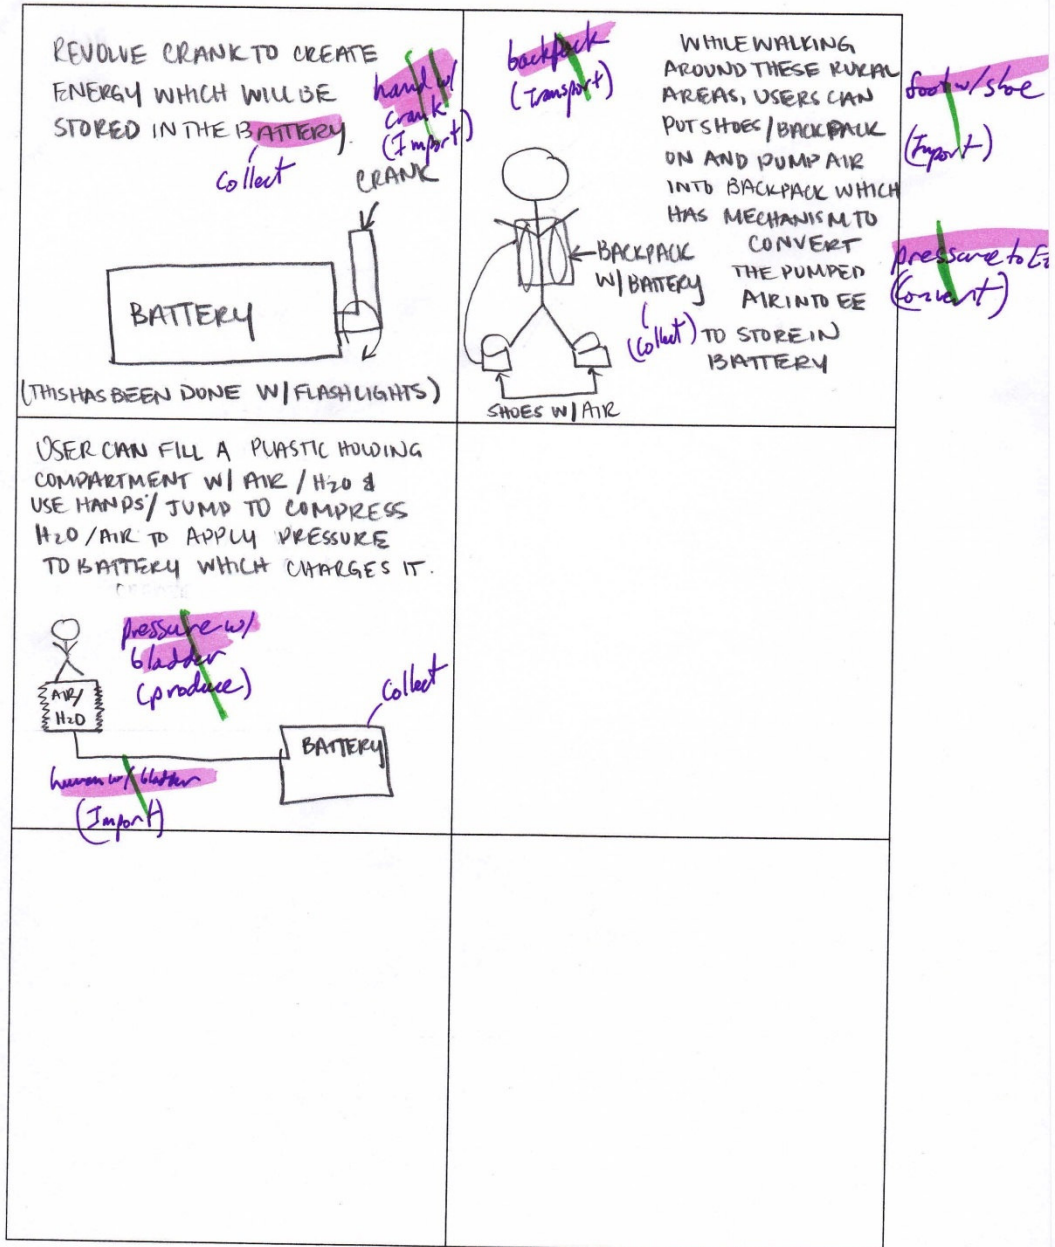 REVOLVE CRANK TO CREATE
ENERGY WHICH WILL BE
STORED IN THE BATTERY.
Collect
hand w/
crank
(Import)
CRANK
BATTERY
(THIS HAS BEEN DONE W/ FLASHLIGHTS)
backpack
(Transport)
WHILE WALKING
AROUND THESE RURAL
AREAS, USERS CAN
PUT SHOES/BACKPACK
ON AND PUMP AIR
INTO BACKPACK WHICH
HAS MECHANISM TO
CONVERT
THE PUMPED
AIR INTO EE
TO STORE IN
BATTERY
BACKPACK
W/ BATTERY
(Collect)
SHOES W/ AIR
foot w/ shoe
(Import)
pressure to
(Convert)
USER CAN FILL A PLASTIC HOLDING
COMPARTMENT W/ AIR / H2O &
USE HANDS/ JUMP TO COMPRESS
H2O/AIR TO APPLY PRESSURE
TO BATTERY WHICH CHARGES IT.
pressure w/
bladder
(produce)
AIR/
H2O
Collect
BATTERY
human w/ bladder
(Import)